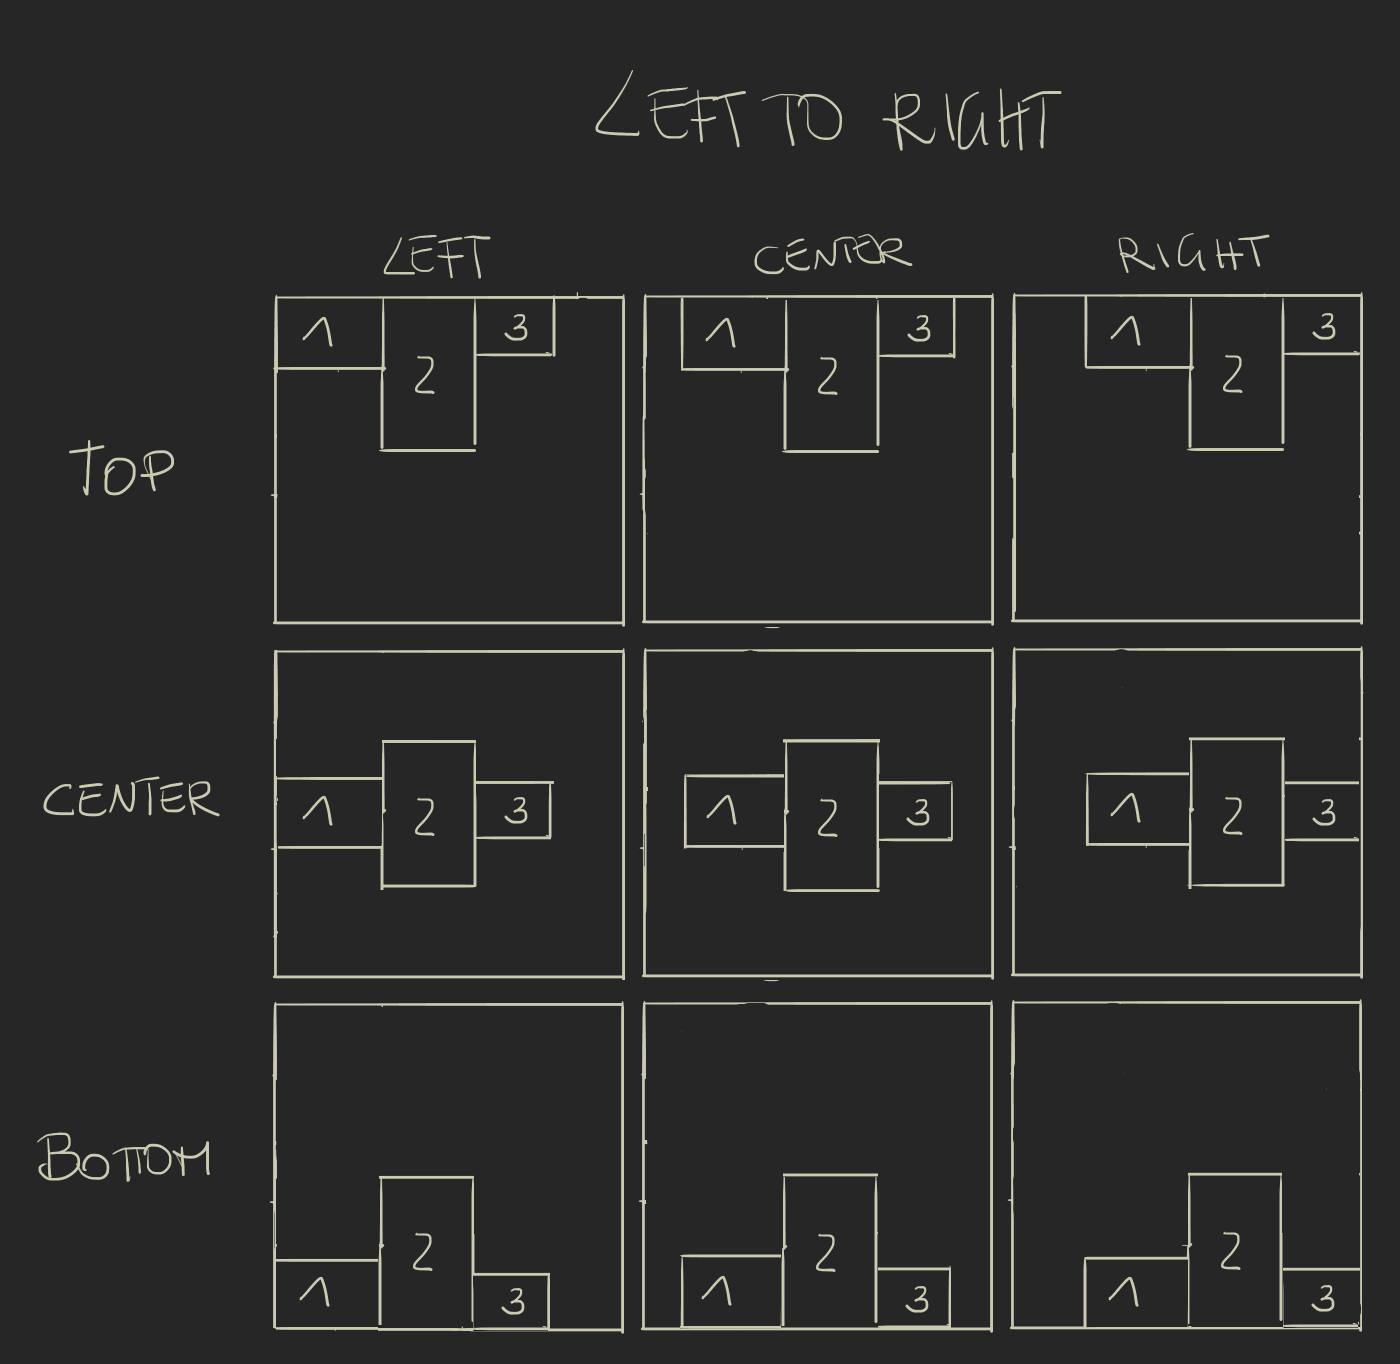 LEFT TO RIGHT
LEFT CENTER RIGHT
1 2 3 1 2 3 1 2 3
TOP
CENTER
1 2 3 1 2 3 1 2 3
BOTTOM
1 2 3 1 2 3 1 2 3